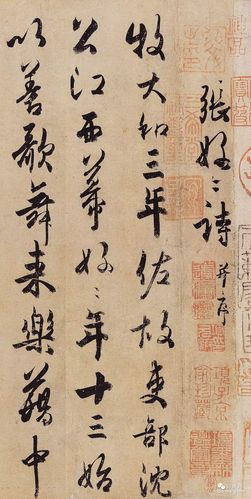 張好〻詩 并序
牧大和三年佐故吏部沈
公江西幕好〻年十三始
以善歌舞来樂籍中